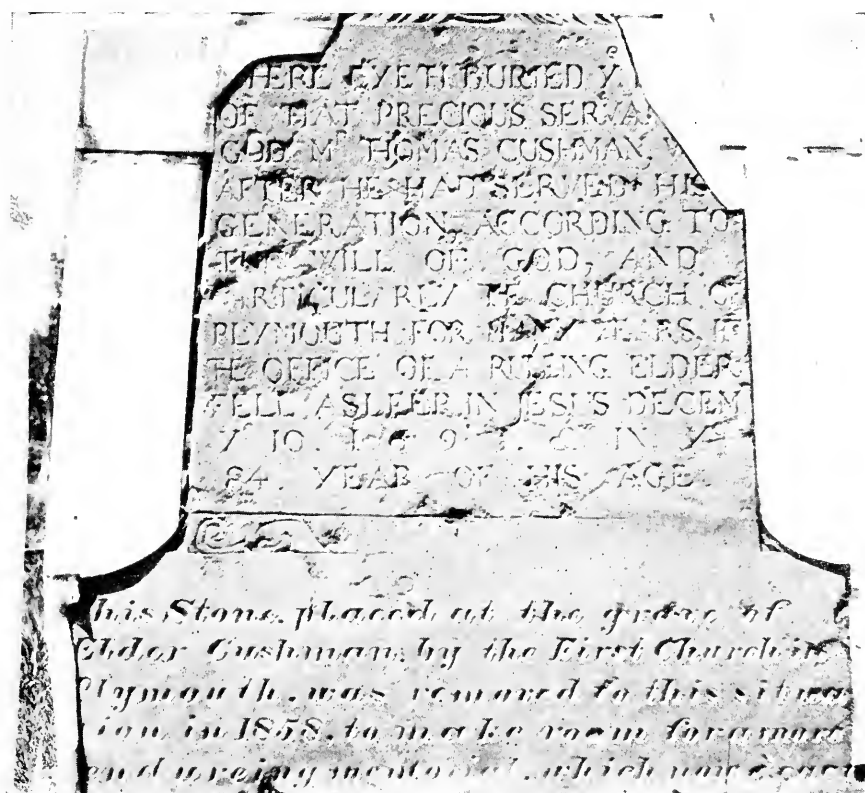 HERE LYETH BURIED Y
OF THAT PRECIOUS SERVA
GOD Mr THOMAS CUSHMAN, W
AFTER HE HAD SERVED HIS
GENERATION ACCORDING TO
THE WILL OF GOD, AND
PARTICULARLY THE CHURCH O
PLYMOUTH FOR MANY YEARS, IN
THE OFFICE OF A RULING ELDER
FELL ASLEEP IN JESUS DECEM
Y 10 1 6 9 IN Y
84 YEAR OF HIS AGE
his Stone, placed at the grave of
Elder Cushman, by the First Church in
Plymouth, was removed to this situa
tion in 1858, to make room for a more
enduring memorial, which now